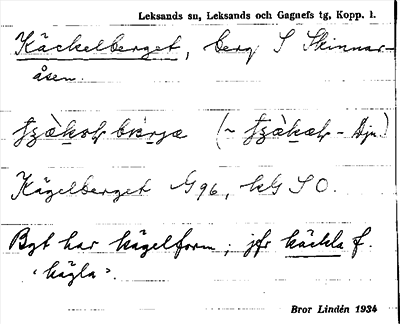 Leksands sn, Leksands och Gagnefs tg, Kopp. l.
Käckelberget, berg S Skinnar-
åsen.
Kägelberget G 96, kG S O.
Bgt har kägelform; jfr käckla f.
"kägla".
Bror Lindén 1934